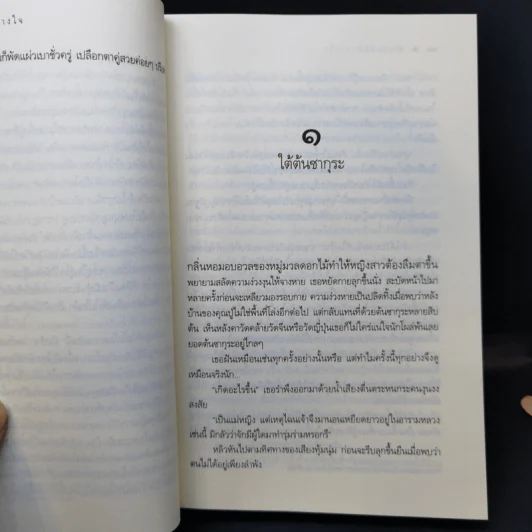 างใจ
ก็พัดแผ่วเบาชั่วครู่ เปลือกตาคู่สวยค่อยๆ
๑
ใต้ต้นซากุระ
กลิ่นหอมอบอวลของหมู่มวลดอกไม้ทำให้หญิงสาวต้องลืมตาขึ้น
พยายามสลัดความง่วงงุนให้จางหาย เธอหยัดกายลุกขึ้นนั่ง สะบัดหน้าไปมา
หลายครั้งก่อนจะเหลียวมองรอบกาย ความง่วงหายเป็นปลิดทิ้งเมื่อพบว่าหลัง
บ้านของคุณปู่ไม่ใช่พื้นที่โล่งอีกต่อไป แต่กลับแทนที่ด้วยต้นซากุระหลายสิบ
ต้น เห็นหลังคาวัดคล้ายวัดจีนหรือวัดญี่ปุ่นเธอก็ไม่ใคร่แน่ใจนักโผล่พ้นเลย
ยอดต้นซากุระอยู่ไกลๆ
เธอฝันเหมือนเช่นทุกครั้งอย่างนั้นหรือ แต่ทำไมครั้งนี้ทุกอย่างจึงดู
เหมือนจริงนัก...
"เกิดอะไรขึ้น" เธอรำพึงออกมาด้วยน้ำเสียงตื่นตระหนกระคนงุนงง
สงสัย
"เป็นแม่หญิง แต่เหตุไฉนเจ้าจึงมานอนเหยียดยาวอยู่ในอารามหลวง
เช่นนี้ มิกลัวว่าจักมีผู้ใดมาทำรุ่มร่ามหรอกรึ"
หลิวหันไปตามทิศทางของเสียงทุ้มนุ่ม ก่อนจะรีบลุกขึ้นยืนเมื่อพบว่า
ตนไม่ได้อยู่เพียงลำพัง